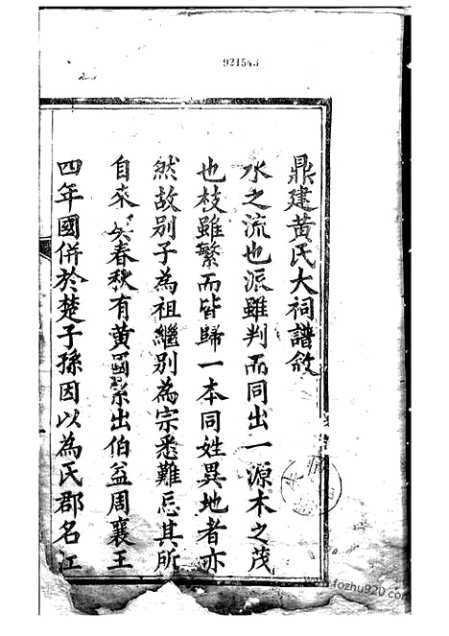 921543
鼎建黃氏大祠譜敘
水之流也派雖判而同出一源木之茂
也枝雖繁而皆歸一本同姓異地者亦
然故別子為祖繼別為宗悉難忘其所
自來矣春秋有黃國系出伯益周襄王
四年國併於楚子孫因以為氏郡名江
www.fozhu920.com